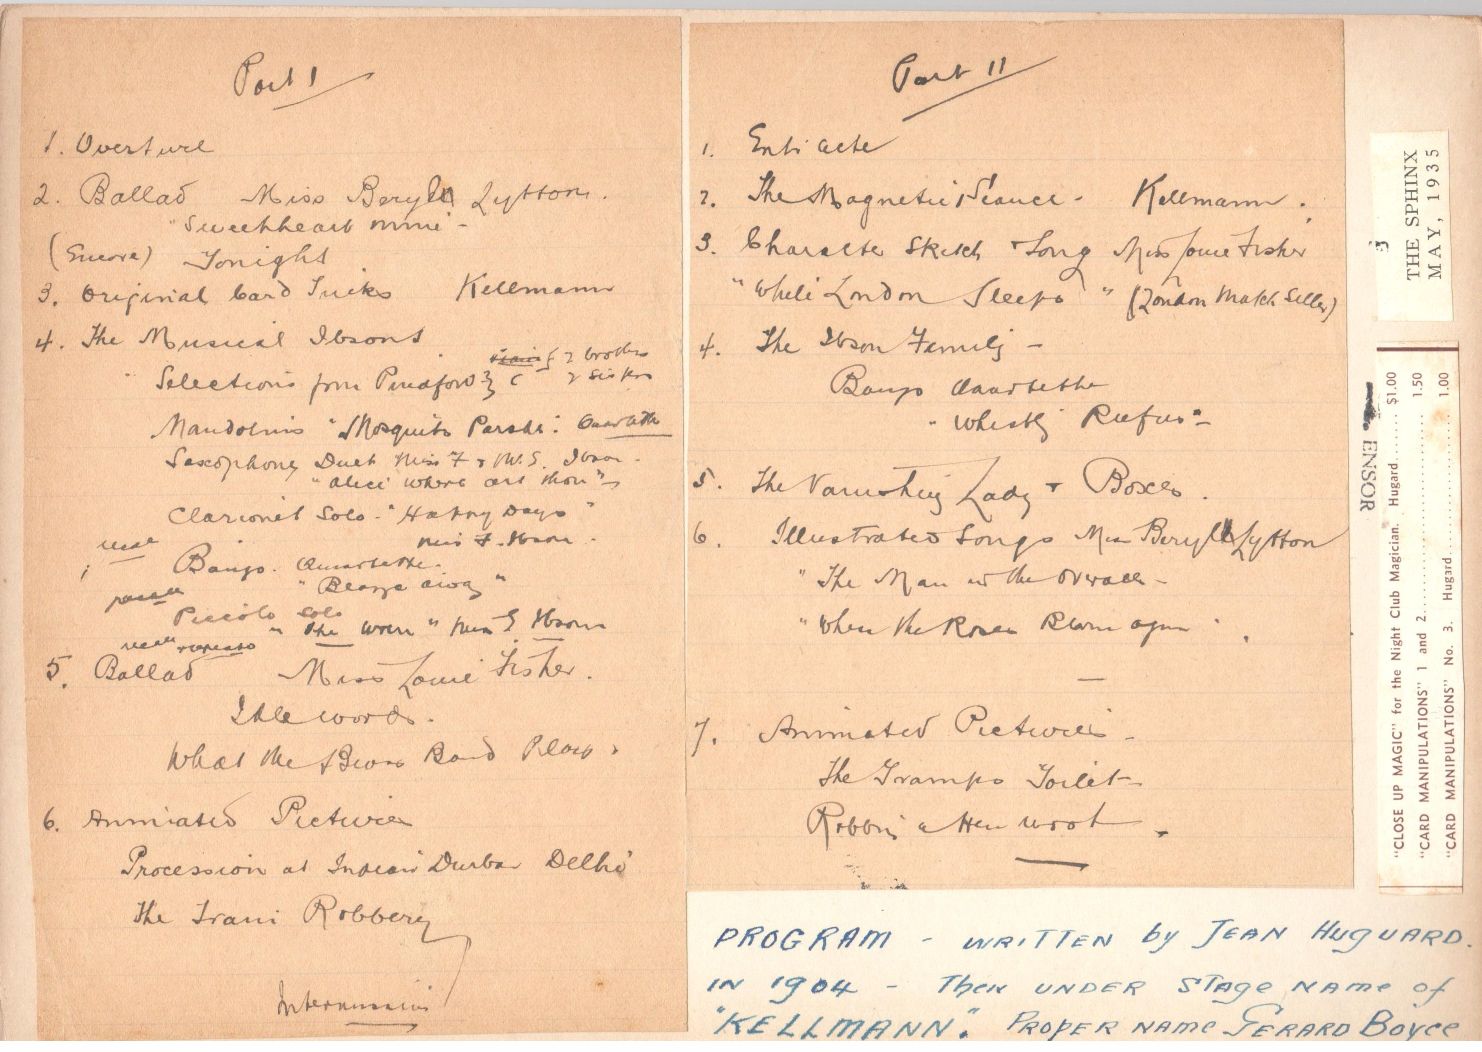 Part I
1. Overture
2. Ballad Miss Beryl Lytton.
"Sweetheart mine -
(Encore) Tonight
3. Original Card Tricks Kellmann
4. The Musical Ibsons
2 brothers
Selections from Pinafore } 2 Sisters
Mandolins "Mosquito Parade". Quartette
Saxophone Duet Miss F & Mr. S. Ibson.
"Alice where art thou"-
Clarionet Solo. "Happy Days"
Miss F. Ibson.
Banjo. Quartette.
away"
Piccolo Solo
"The Wren" Miss Ibson
5. Ballad Miss Louie Fisher.
Idle words.
What the Band Plays.
6. Animated Pictures
Procession at Indian Durbar Delhi
The Train Robbery
Intermission
Part II
1. Entr acte
2. The Magnetic Seance - Kellmann.
3. Character Sketch & Song Miss Louie Fisher
"While London Sleeps" (London Match Seller)
4. The Ibson Family -
Banjo Quartette
"Whistling Rufus"-
5. The Vanishing Lady & Boxes.
6. Illustrated Songs Miss Beryl Lytton
"The Man in the Overalls -
"When the Roses Bloom again".
7. Animated Pictures -
The Tramps Toilet-
Robbing a Hen roost.
PROGRAM - WRITTEN by JEAN HUGUARD.
IN 1904 - Then UNDER STAGE NAME of
"KELLMANN". PROPER NAME GERARD BOYCE
3
THE SPHINX
MAY, 1935
ENSOR
"CLOSE UP MAGIC" for the Night Club Magician. Hugard........ $1.00
"CARD MANIPULATIONS" 1 and 2........ 1.50
"CARD MANIPULATIONS" No. 3. Hugard........ 1.00